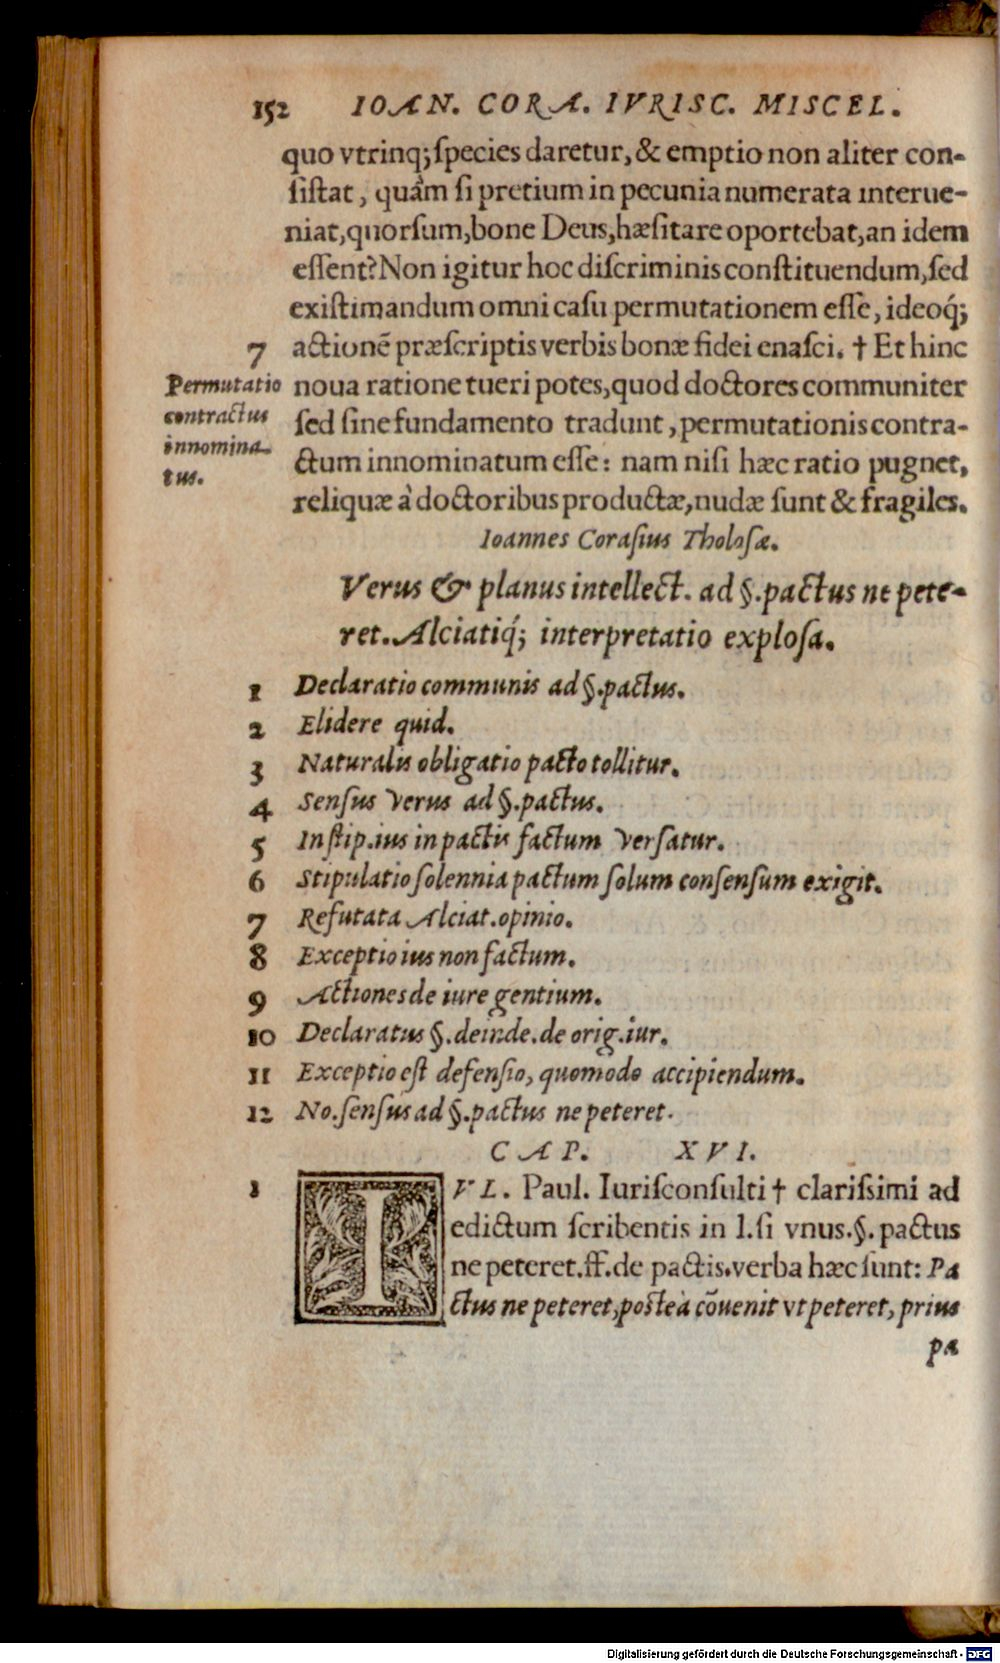 152 IOAN. CORA. IVRISC. MISCEL.
quo vtrinq; species daretur, & emptio non aliter con-
sistat, quàm si pretium in pecunia numerata interue-
niat, quorsum, bone Deus, hæsitare oportebat, an idem
essent? Non igitur hoc discriminis constituendum, sed
existimandum omni casu permutationem esse, ideoq́;
7 actionē præscriptis verbis bonæ fidei enasci. † Et hinc
Permutatio
contractus
innomina-
tus.
noua ratione tueri potes, quod doctores communiter
sed sine fundamento tradunt, permutationis contra-
ctum innominatum esse: nam nisi hæc ratio pugnet,
reliquæ à doctoribus productæ, nudæ sunt & fragiles.
Ioannes Corasius Tholosæ.
Verus & planus intellect. ad §. pactus ne pete-
ret. Alciatiq́; interpretatio explosa.
1 Declaratio communis ad §. pactus.
2 Elidere quid.
3 Naturalis obligatio pacto tollitur.
4 Sensus verus ad §. pactus.
5 In stip. ius in pactis factum versatur.
6 Stipulatio solennia pactum solum consensum exigit.
7 Refutata Alciat. opinio.
8 Exceptio ius non factum.
9 Actiones de iure gentium.
10 Declaratus §. deinde. de orig. iur.
11 Exceptio est defensio, quomodo accipiendum.
12 No. sensus ad §. pactus ne peteret.
CAP. XVI.
1 IVL. Paul. Iurisconsulti † clarissimi ad
edictum scribentis in l. si vnus. §. pactus
ne peteret. ff. de pactis. verba hæc sunt: Pa
ctus ne peteret, posteà cōuenit vt peteret, prius
pa
Digitalisierung gefördert durch die Deutsche Forschungsgemeinschaft - DFG